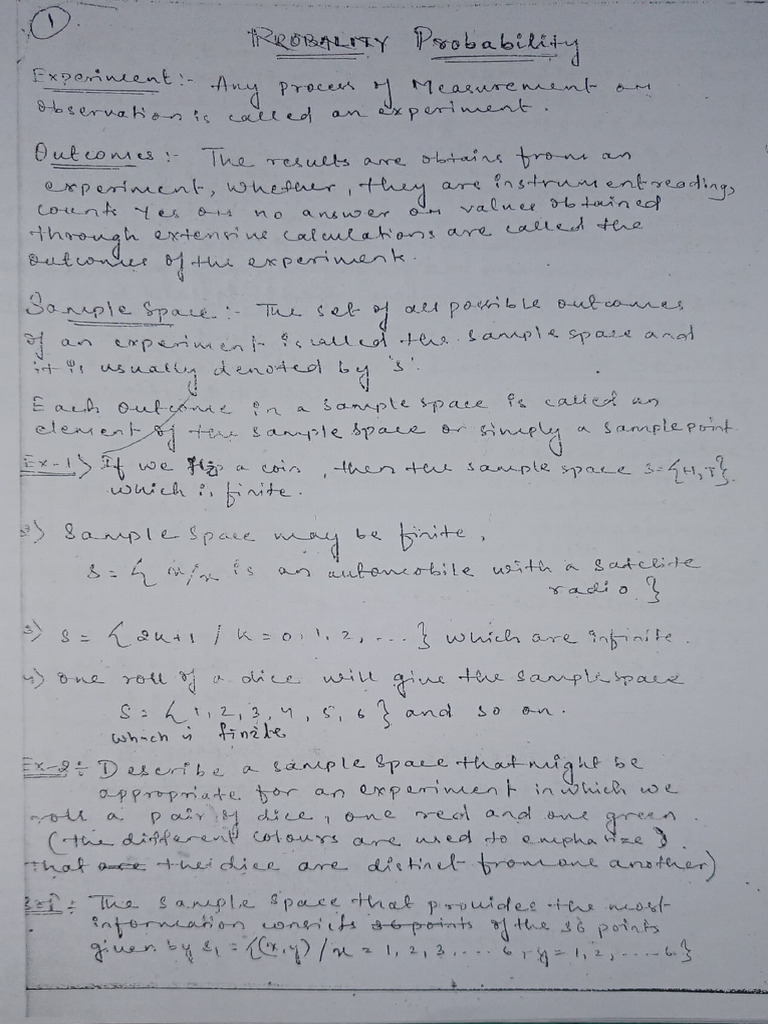 1
PROBALITY Probability
Experiment:- Any process of Measurement or
observation is called an experiment.
Outcomes:- The results are obtains from an
experiment, whether, they are instrument readings
counts yes or no answer or values obtained
through extensive calculations are called the
outcomes of the experiment.
Sample Space:- The set of all possible outcomes
of an experiment is called the sample space and
it is usually denoted by 's'.
Each outcome in a sample space is called an
element of the sample space or simply a sample point.
Ex-1) If we flip a coin, then the sample space S={H,T}.
which is finite.
2) Sample Space may be finite,
S = { x/x is an automobile with a satelite
radio }
3) S = { 2k+1 / k = 0, 1, 2, ... } which are infinite.
4) one roll of a dice will give the sample space
S = { 1, 2, 3, 4, 5, 6 } and so on.
which is finite
Ex-2:- Describe a sample space that might be
appropriate for an experiment in which we
roll a pair of dice, one red and one green.
(the different colours are used to emphasize
that are the dice are distinct from one another)
The sample space that provides the most
information consists 36 points of the 36 points
given by S₁ = {(x,y) / x = 1, 2, 3, .... 6, y = 1, 2, ..... 6}